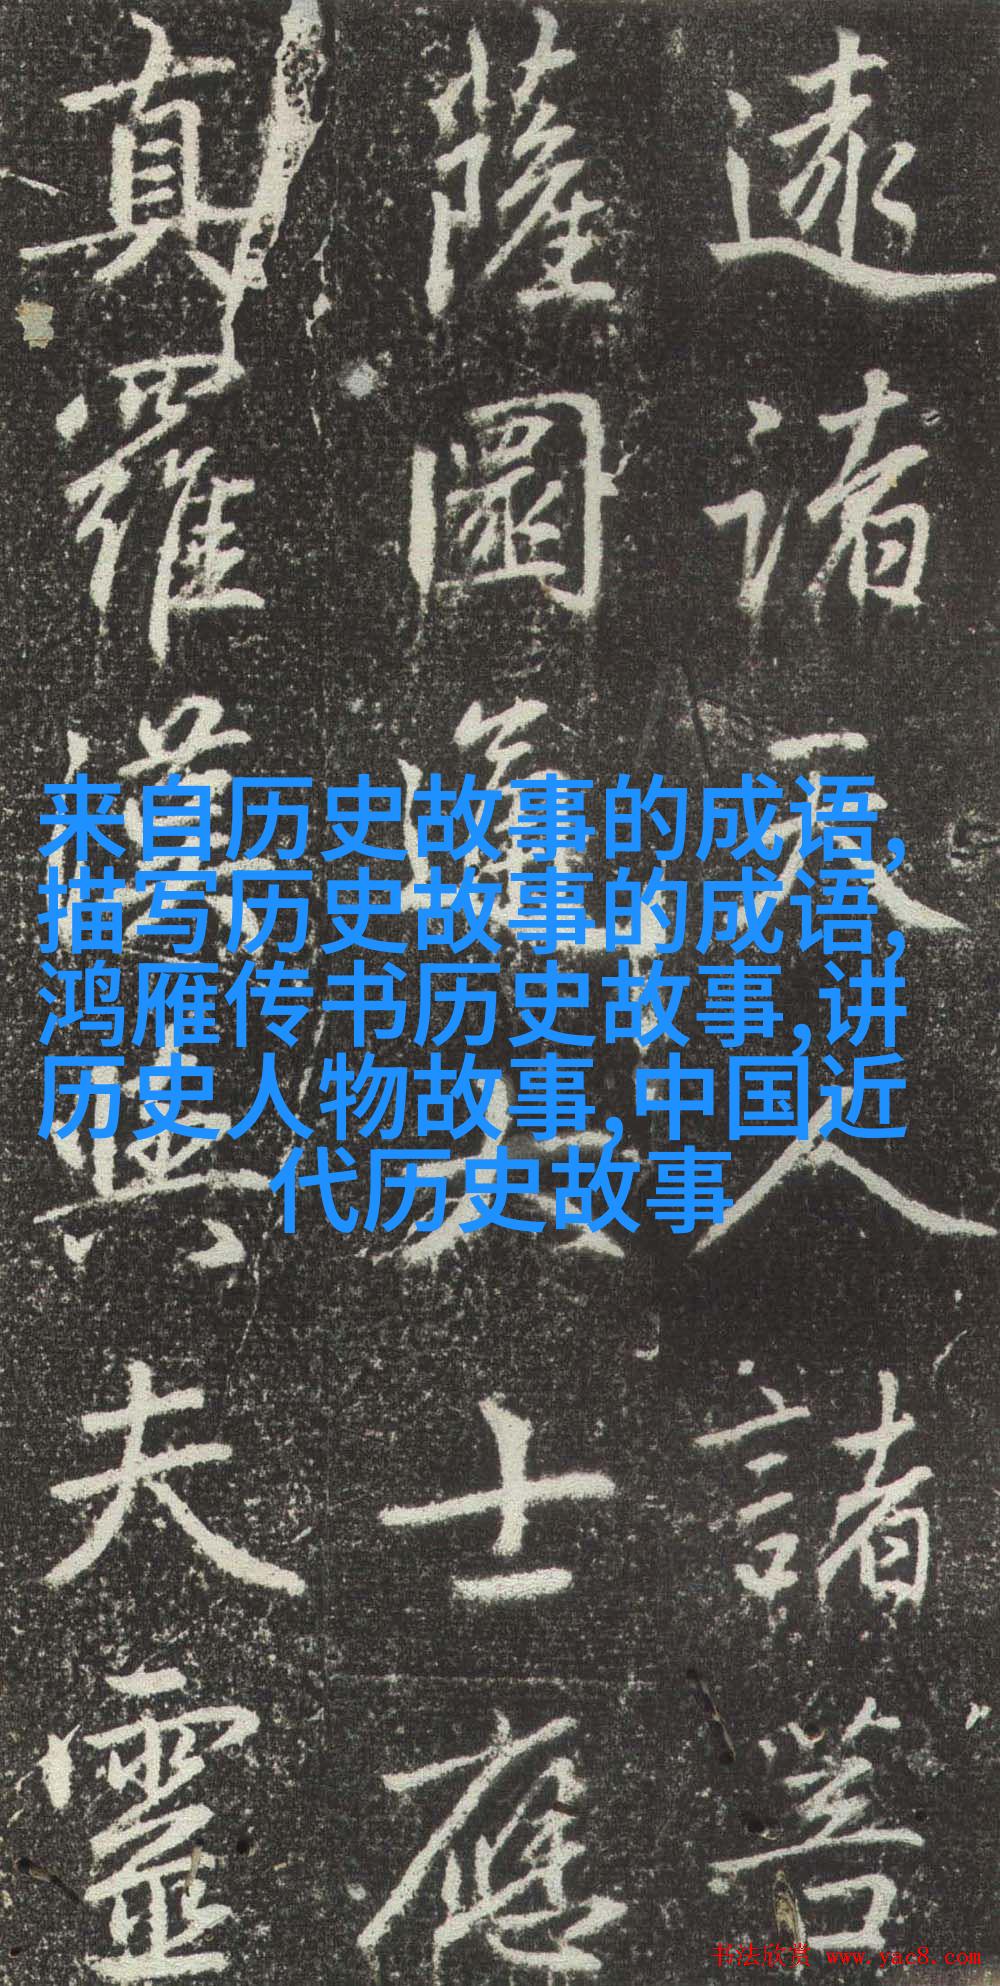 遠諸天人諸菩
薩圖大士應
真羅漢與夫靈
来自历史故事的成语,
描写历史故事的成语,
鸿雁传书历史故事,讲
历史人物故事,中国近
代历史故事
书法欣赏 www.yac8.com